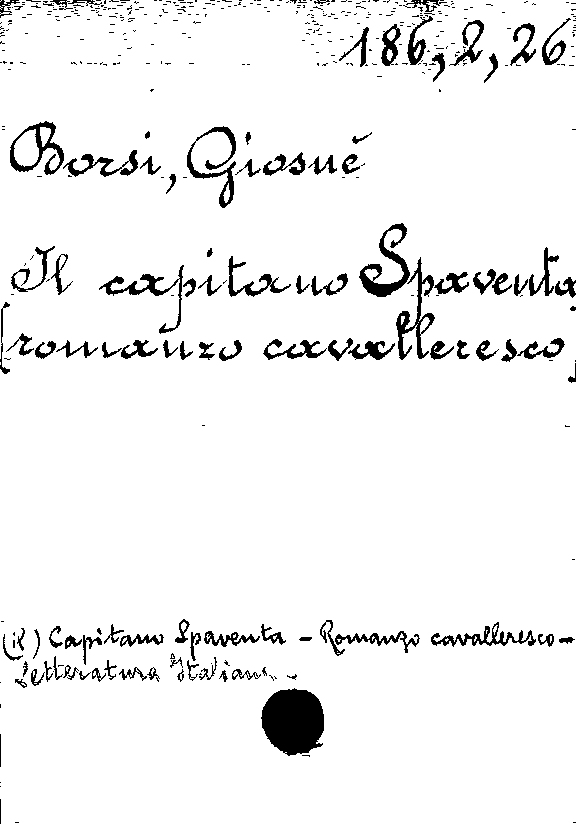 186, 2, 26
Borsi, Giosuè
Il capitano Spaventa
[romanzo cavalleresco]
(Il) Capitano Spaventa - Romanzo cavalleresco -
Letteratura Italiana. -